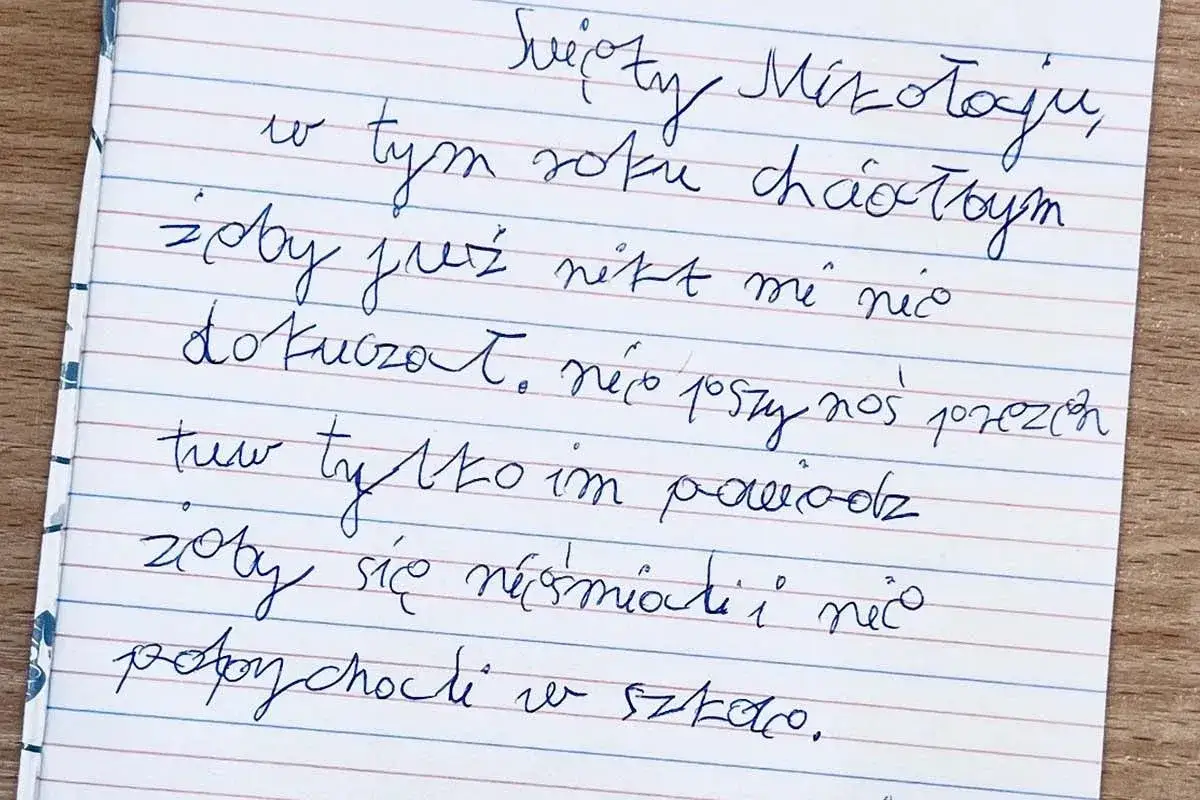 Święty Mikołaju,
w tym roku chciałbym
żeby już nikt mi nie
dokuczał. nie poszynoś prezen
tuw tylko im powiedz
żeby się nieśmiali i nie
popychali w szkole.